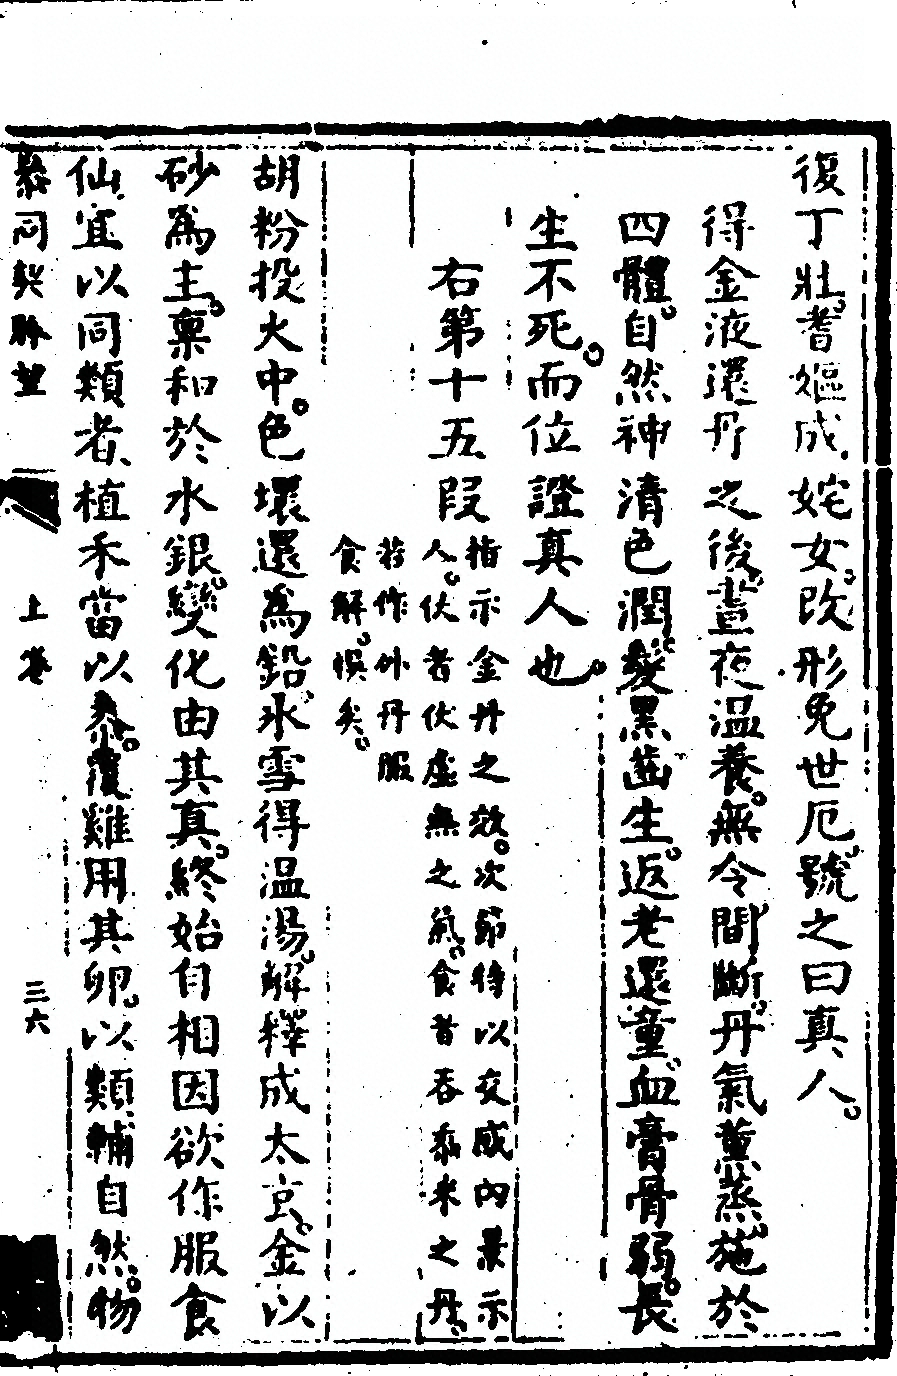 復丁壯。耆嫗成姹女。改形免世厄。號之曰真人。
得金液還丹之後。晝夜温養。無令間斷。丹氣薰蒸。施於
四體。自然神清色潤。髮黑齒生。返老還童。血膏骨弱。長
生不死。而位證真人也。
右第十五段
指示金丹之效。次節特以交感內景示
人。伏者伏虛無之氣。食者吞黍米之丹。
若作外丹服
食解悞矣。
胡粉投火中。色壞還爲鉛。氷雪得温湯。解釋成太玄。金以
砂爲主。稟和於水銀。變化由其真。終始自相因。欲作服食
仙。宜以同類者。植禾當以黍。覆雞用其卵。以類輔自然。物
參同契脉望
上卷
三六